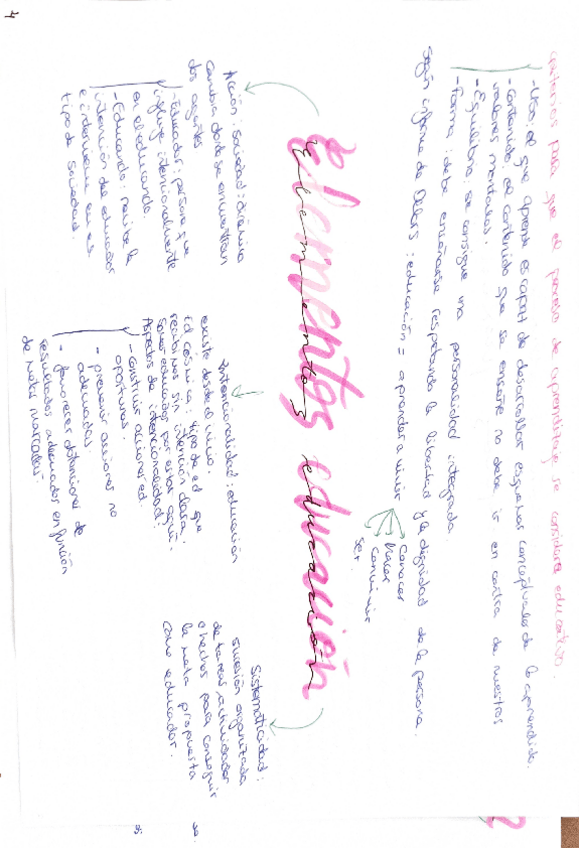 Criterios para que el proceso de aprendizaje se considera educativo.
- Uso, el que aprende es capaz de desarrollar esquemas conceptuales de lo aprendido.
- Contenido, el contenido que se enseñe no debe ir en contra de nuestros
valores mentales.
- Equilibrio, se consigue una personalidad integrada.
- Forma: debe enseñarse respetando la libertad y la dignidad de la persona.
Según informe de Delors: educación = aprender a vivir
Conocer
hacer
Convivir
Ser.
Elementos educación
Acción: sociedad: dinámica
cambia donde se encuentran
dos agentes
- Educador: persona que
influye intencionalmente
en el educando.
- Educando: recibe la
intención del educador
e interviene en es
tipo de sociedad.
Intencionalidad: educación
existe desde el inicio.
Ed cósmica: tipo de ed que
recibimos sin intención clara.
Somos educados por estar aquí.
Aspectos de intencionalidad:
- Construir acciones ed
oportunas.
- prevenir acciones no
adecuadas.
- favorecer obtenciones de
resultados adecuados en función
de metas marcadas.
Sistematicidad:
sucesión organizada
de tareas, actividades
o hechos para conseguir
la meta propuesta
como educador.